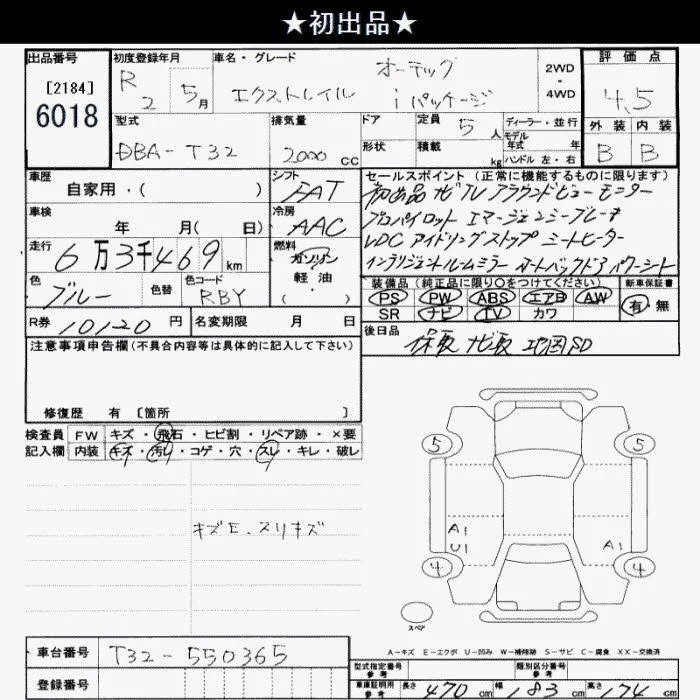 ★初出品★
出品番号
[2184]
6018
初度登録年月
R 2 5月
車名・グレード
オーテック
エクストレイル iパッケージ
2WD
・
4WD
評価点
4.5
外装 内装
B B
型式
DBA-T32
排気量
2000 cc
ドア
形状
定員 5人
積載 kg
ディーラー・並行
モデル年式 年
ハンドル 左・右
車歴
自家用・( )
シフト
FAT
車検
年 月( 日)
冷房
AAC
走行
6万3千469km
燃料
ガソリン
軽・油
( ・ )
色
ブルー
色替
色コード
RBY
R券 10120円
名変期限 月 日
セールスポイント(正常に機能するものに限ります)
初出品 ナビTV アラウンドビューモニター
プロパイロット エマージェンシーブレーキ
LDC アイドリングストップ シートヒーター
インテリジェントルームミラー オートバックドア パワーシート
装備品(純正品に限り○をつけてください)
PS PW ABS エアB AW
SR ナビ TV カワ
新車保証書
有・無
後日品
保取 ナビ取 地図SD
注意事項申告欄(不具合内容等は具体的に記入して下さい)
修復歴 有 [箇所 ]
検査員記入欄
FW キズ・飛石・ヒビ割・リペア跡・×要
内装 キズ・汚レ・コゲ・穴・スレ・キレ・破レ
キズE、スリキズ
5 5
A1
U1 A1
4 4
スペア
A-キズ E-エクボ U-凹み W-補修跡 S-サビ C-腐食 XX-交換済
車台番号 T32-550365
登録番号
型式指定番号
参考
類別区分番号
参考
車庫証明用
参考
長さ 470 cm 幅 83 cm 高さ 174 cm